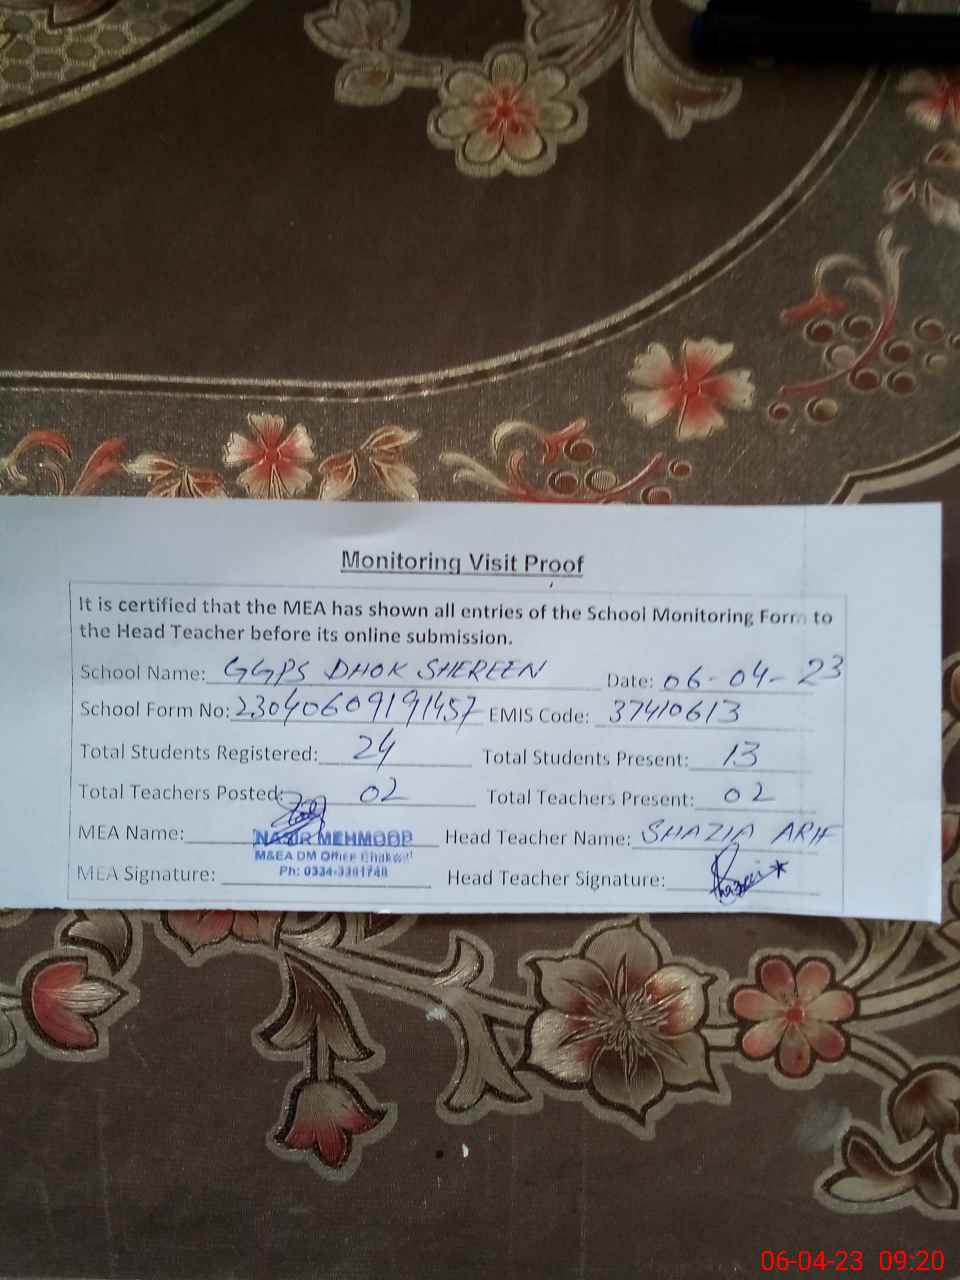 Monitoring Visit Proof
It is certified that the MEA has shown all entries of the School Monitoring Form to
the Head Teacher before its online submission.
School Name: GGPS DHOK SHEREEN Date: 06-04-23
School Form No: 23040609191457 EMIS Code: 37410613
Total Students Registered: 24 Total Students Present: 13
Total Teachers Posted: 02 Total Teachers Present: 02
MEA Name: NAZIR MEHMOOD Head Teacher Name: SHAZIA ARIF
M&EA DM Office Chakwal
MEA Signature: Ph: Head Teacher Signature:
06-04-23 09:20